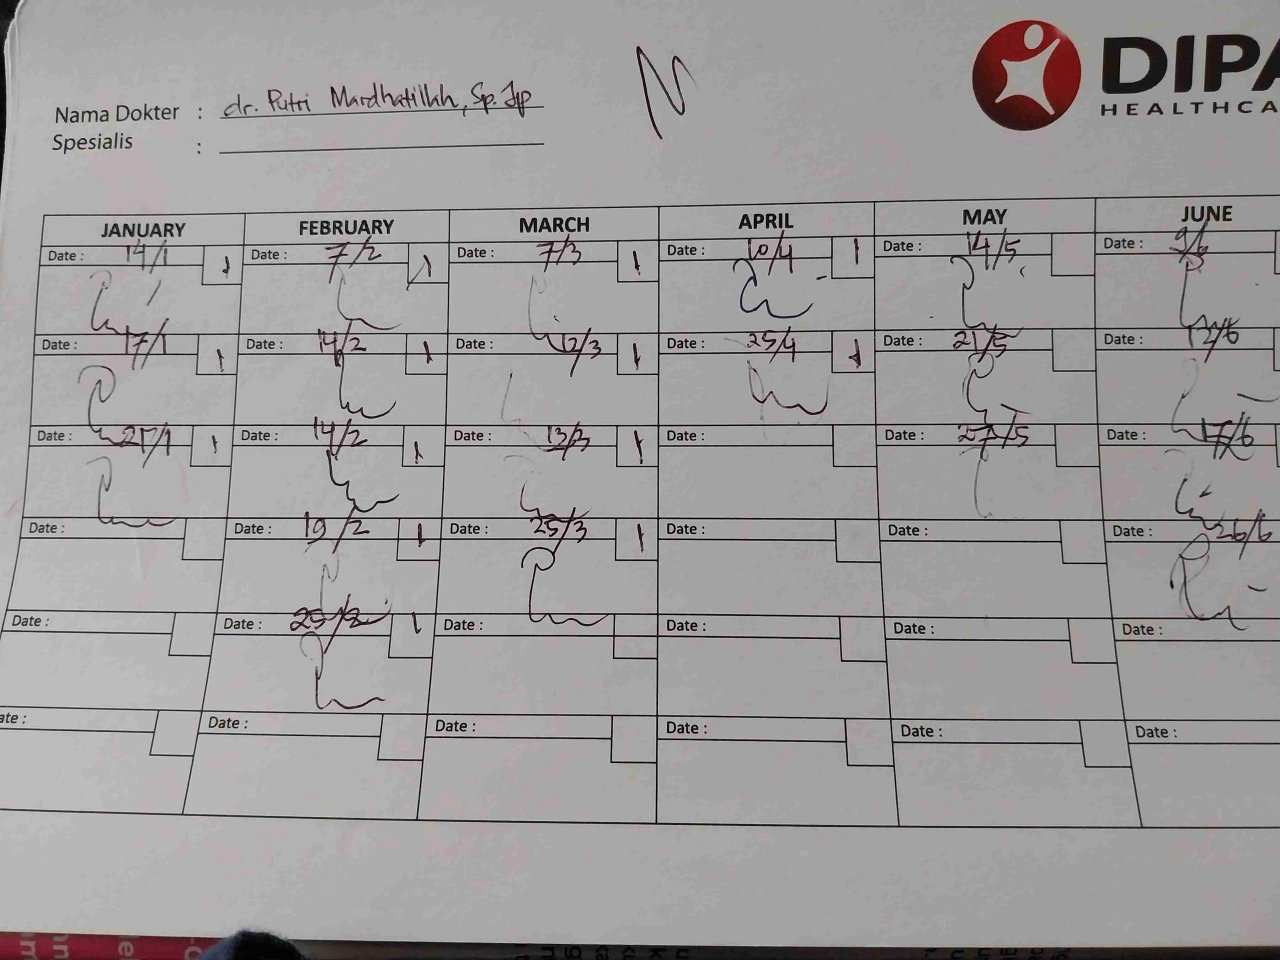 DIPA
HEALTHCA
Nama Dokter : dr. Putri Mardhatillah, Sp. Jp
Spesialis :
JANUARY FEBRUARY MARCH APRIL MAY JUNE
Date : 14/1 1 Date : 7/2 1 Date : 7/3 1 Date : 10/4 1 Date : 14/5 Date : 9/6
Date : 17/1 1 Date : 14/2 1 Date : 12/3 1 Date : 25/4 1 Date : 21/5 Date : 12/6
Date : 21/1 1 Date : 14/2 1 Date : 13/3 1 Date : Date : 27/5 Date : 17/6
Date : Date : 19/2 1 Date : 25/3 1 Date : Date : Date : 26/6
Date : Date : 25/2 1 Date : Date : Date : Date :
ate : Date : Date : Date : Date : Date :